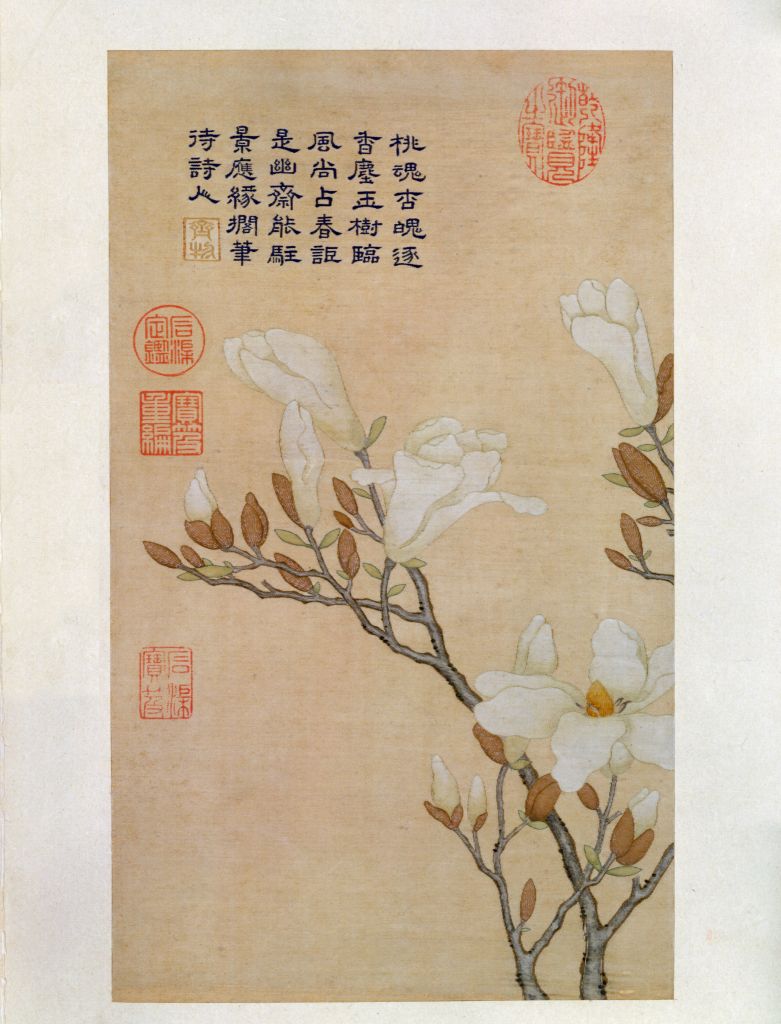 乾隆
御覽
之寶
桃魂杏魄逐
香塵玉樹臨
風尚占春詎
是幽齋能駐
景應緣擱筆
待詩人
齊物
石渠
定鑑
寶笈
重編
石渠
寶笈